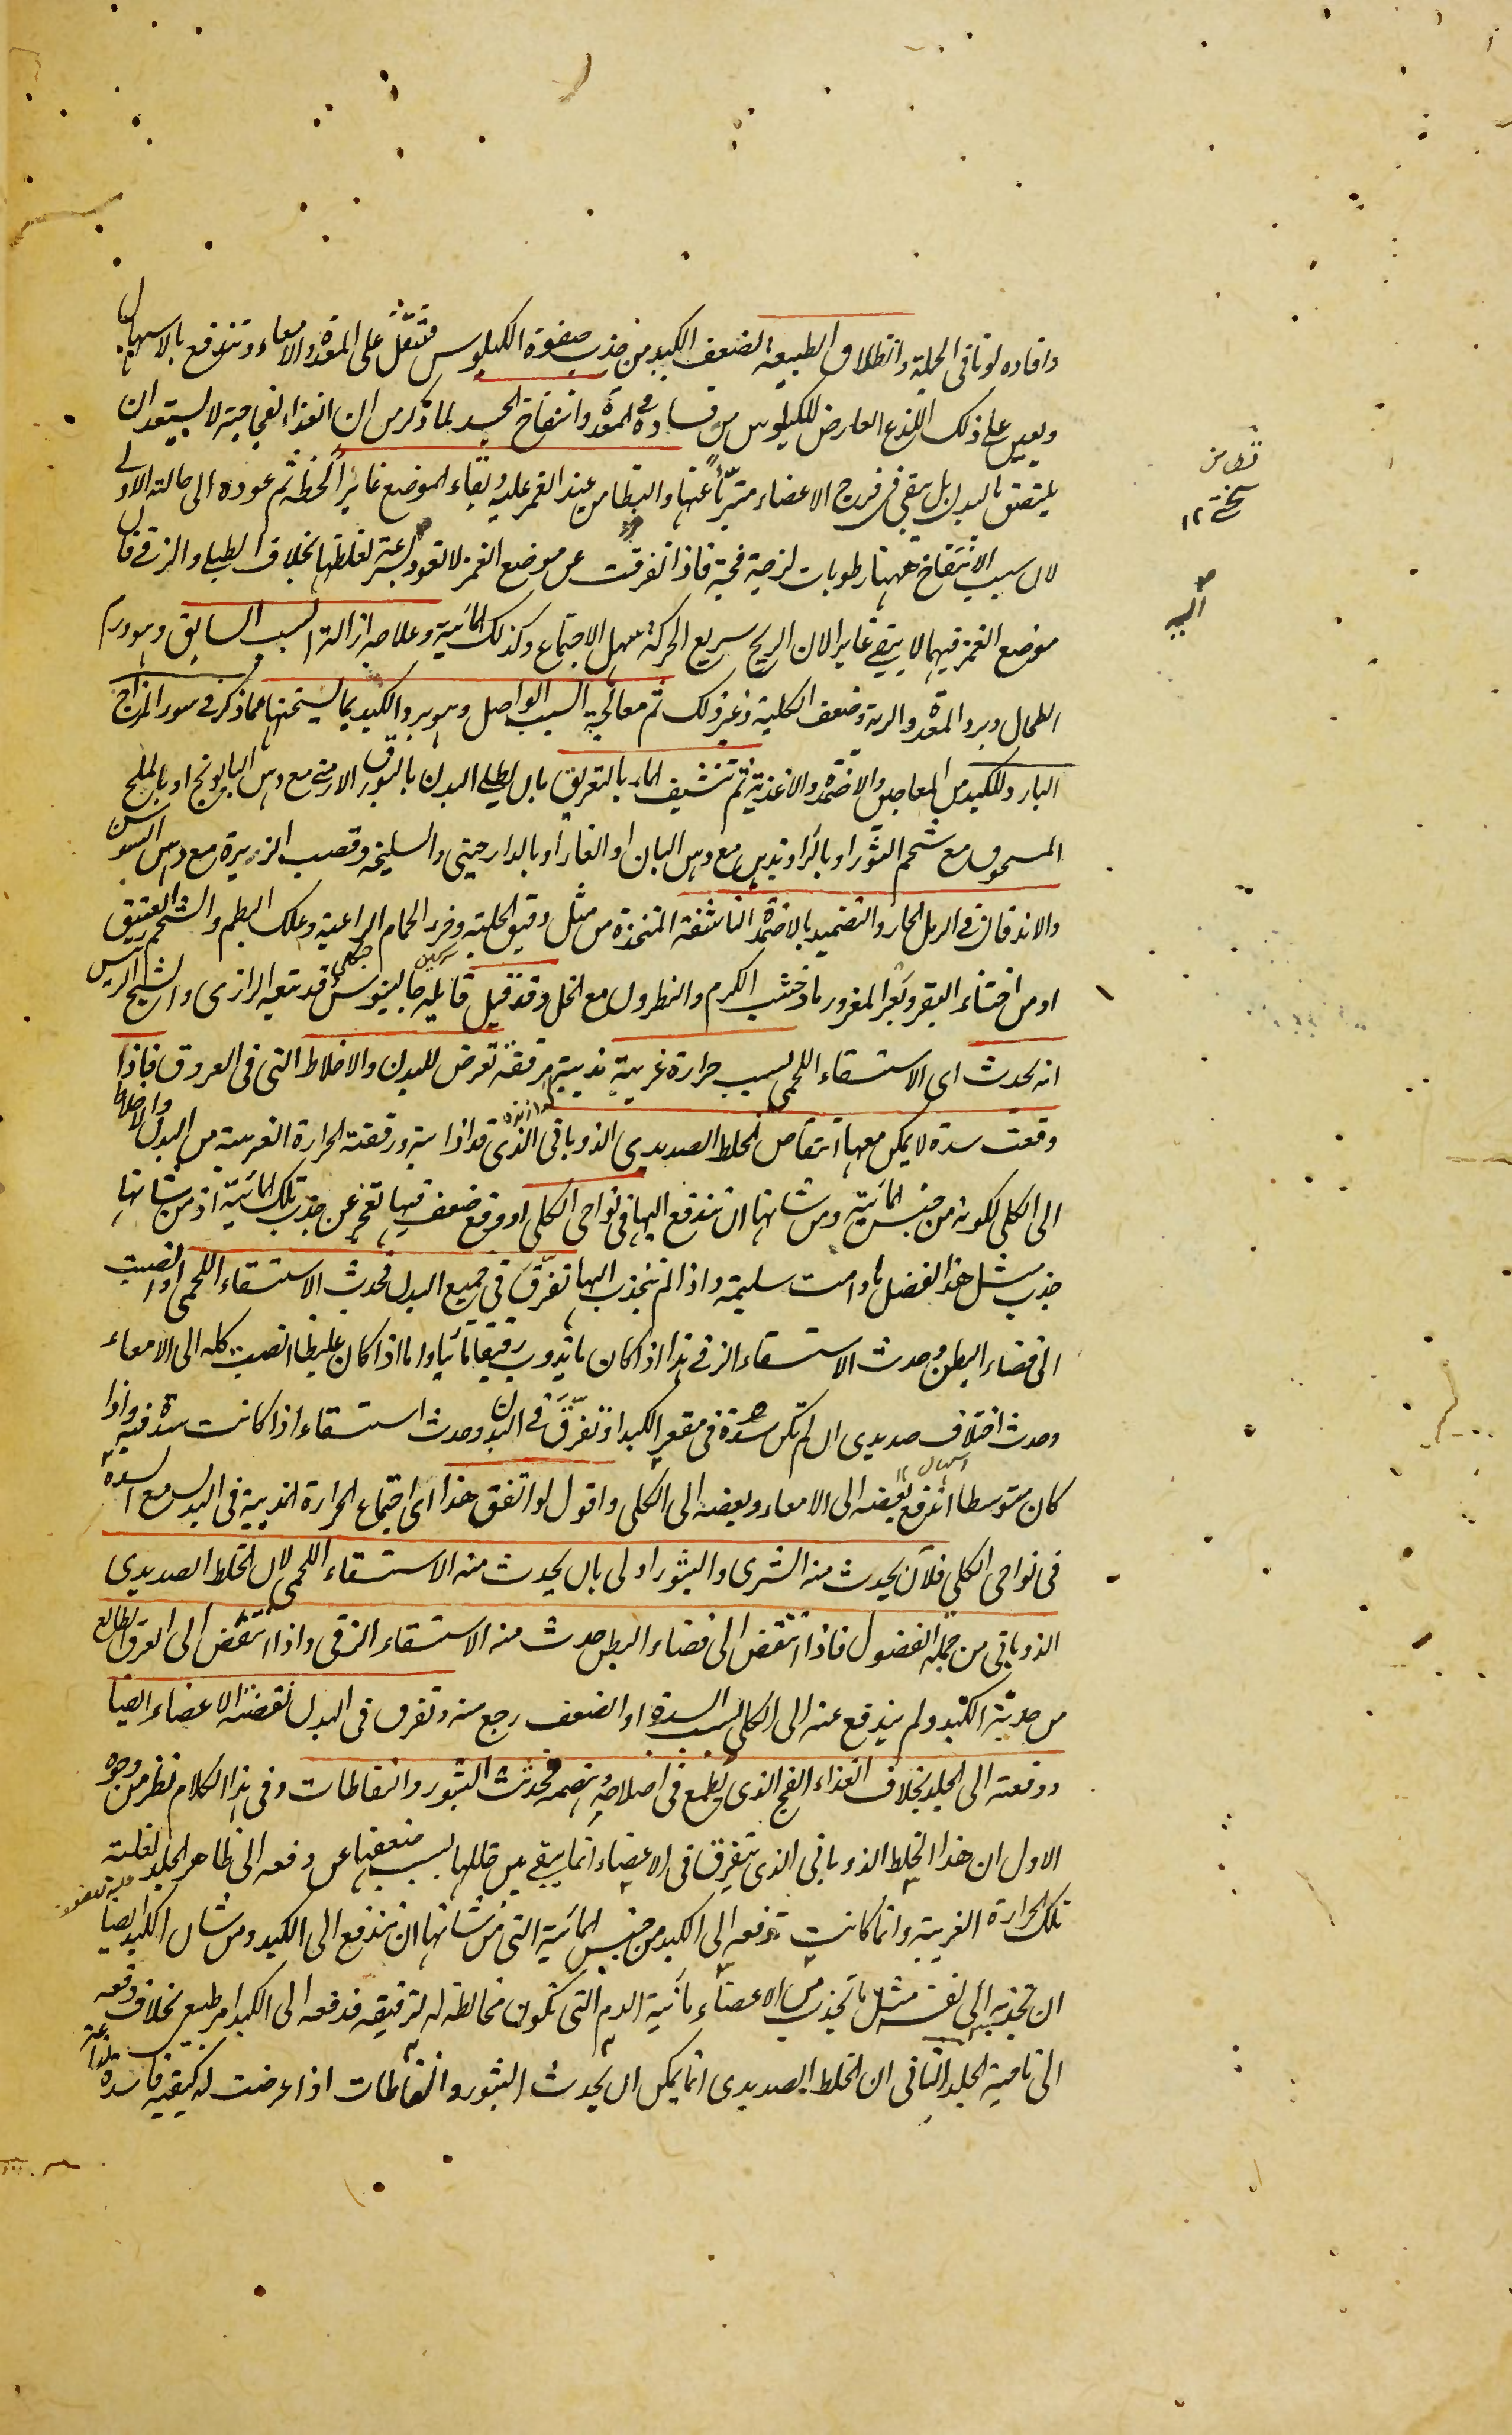 وافاده لونا فى الجملة وانطلاق الطبيعة لضعف الكبد من جذب صفوة الكيلوس فتثقل على المعدة والامعاء وتندفع بالاسهال
ويعين على ذلك اللذع العارض للكيلوس من فساده فى المعدة وانتفاخ الجسد لما ذكر من ان الغذاء لفجاجته لا يستعد لان
يلتصق بالبدن بل يبقى فى فرج الاعضاء متبرّئا عنها والتطامن عند الغمز عليه وبقاء الموضع غايرا لحظة ثم عوده الى حالته الاولى
لان سبب الانتفاخ ههنا رطوبات لزجة فجة فاذا تفرقت عن موضع الغمز لا تعود بسرعة لغلظها بخلاف الطبلى والزقى فان
موضع الغمز فيهما لا يبقى غايرا لان الريح سريع الحركة سهل الاجتماع وكذلك المائية وعلاجه ازالة السبب السابق وهو ورم
الطحال وبرد المعدة والرية وضعف الكلية وغير ذلك ثم معالجة السبب الواصل وهو برد الكبد بما يسخنها مما ذكر فى سوء المزاج
البارد للكبد من المعاجين والاضمدة والاغذية ثم تنشيف الماء بالتعريق بان يطلى البدن بالبورق الارمنى مع دهن البابونج او بالملح
المسحوق مع شحم الثور او بالزراوند مع دهن البان او الغار او بالدارچينى والسليخة وقصب الزريرة مع دهن السوسن
والاندفان فى الرمل الحار والتضميد بالاضمدة الناشفة المتخذة من مثل دقيق الحلبة وخرء الحمام الراعية وعلك البطم والشحم العتيق
او من اخثاء البقر وبعر المعز ورماد خشب الكرم والنطرون مع الخل وقد قيل قايله جالينوس قد تبعه الرازى والشيخ الرئيس
انه يحدث اى الاستسقاء اللحمى بسبب حرارة غريبة مذيبة مرققة تعرض للبدن والاخلاط التى فى العروق فاذا
وقعت سدة لا يمكن معها انتفاض الخلط الصديدى الذوبانى الذى قد اذابته ورققته الحرارة الغريبة من البدن والاخلاط
الى الكلى لكونه من جنس المائية ومن شانها ان تندفع اليها فى نواحى الكلى او وقع ضعف فيها تعجز عن جذب تلك المائية اذ من شانها
جذب مثل هذا الفضل ما دامت سليمة واذا لم تنجذب اليها تفرّق فى جميع البدن فحدث الاستسقاء اللحمى او انصبت
الى فضاء البطن وحدث الاستسقاء الزقى هذا اذا كان ما يذوب رقيقا مائيا واما اذا كان غليظا انصب كله الى الامعاء
وحدث اختلاف صديدى ان لم تكن سدة فى مقعر الكبد او تفرّق فى البدن وحدث استسقاء اذا كانت سدة فيه واذا
كان متوسطا اندفع بعضه الى الامعاء وبعضه الى الكلى واقول لو اتفق هذا اى اجتماع الحرارة المذيبة فى البدن مع السدة
فى نواحى الكلى فلان يحدث منه الشرى والبثور اولى بان يحدث منه الاستسقاء اللحمى لان الخلط الصديدى
الذوبانى من جملة الفضول فاذا انتفض الى فضاء البطن حدث منه الاستسقاء الزقى واذا انتفض الى العرق الطالع
من حدبة الكبد ولم يندفع عنه الى الكلى لسبب السدة او الضعف رجع منه وتفرق فى البدن نفضته الاعضاء ايضا
ودفعته الى الجلد بخلاف الغذاء الفج الذى يطمع فى اصلاحه وهضمه فحدثت البثور والنفاطات وفى هذا الكلام نظر من وجوه
الاول ان هذا الخلط الذوبانى الذى يتفرق فى الاعضاء انما يبقى بين خللها بسبب ضعفها عن دفعه الى ظاهر الجلد لغلبة
تلك الحرارة الغريبة وانما كانت تدفعه الى الكبد من جنس المائية التى من شانها ان تندفع الى الكبد ومن شان الكبد ايضا
ان تجذبه الى نفسه مثل ما تجذب من الاعضاء مائية الدم التى تكون مخالطة له لترقيقه فدفعه الى الكبد امر طبيعى بخلاف دفعه
الى ناحية الجلد الثانى ان الخلط الصديدى انما يمكن ان يحدث البثور والنفاطات اذا عرضت له كيفية فاسدة